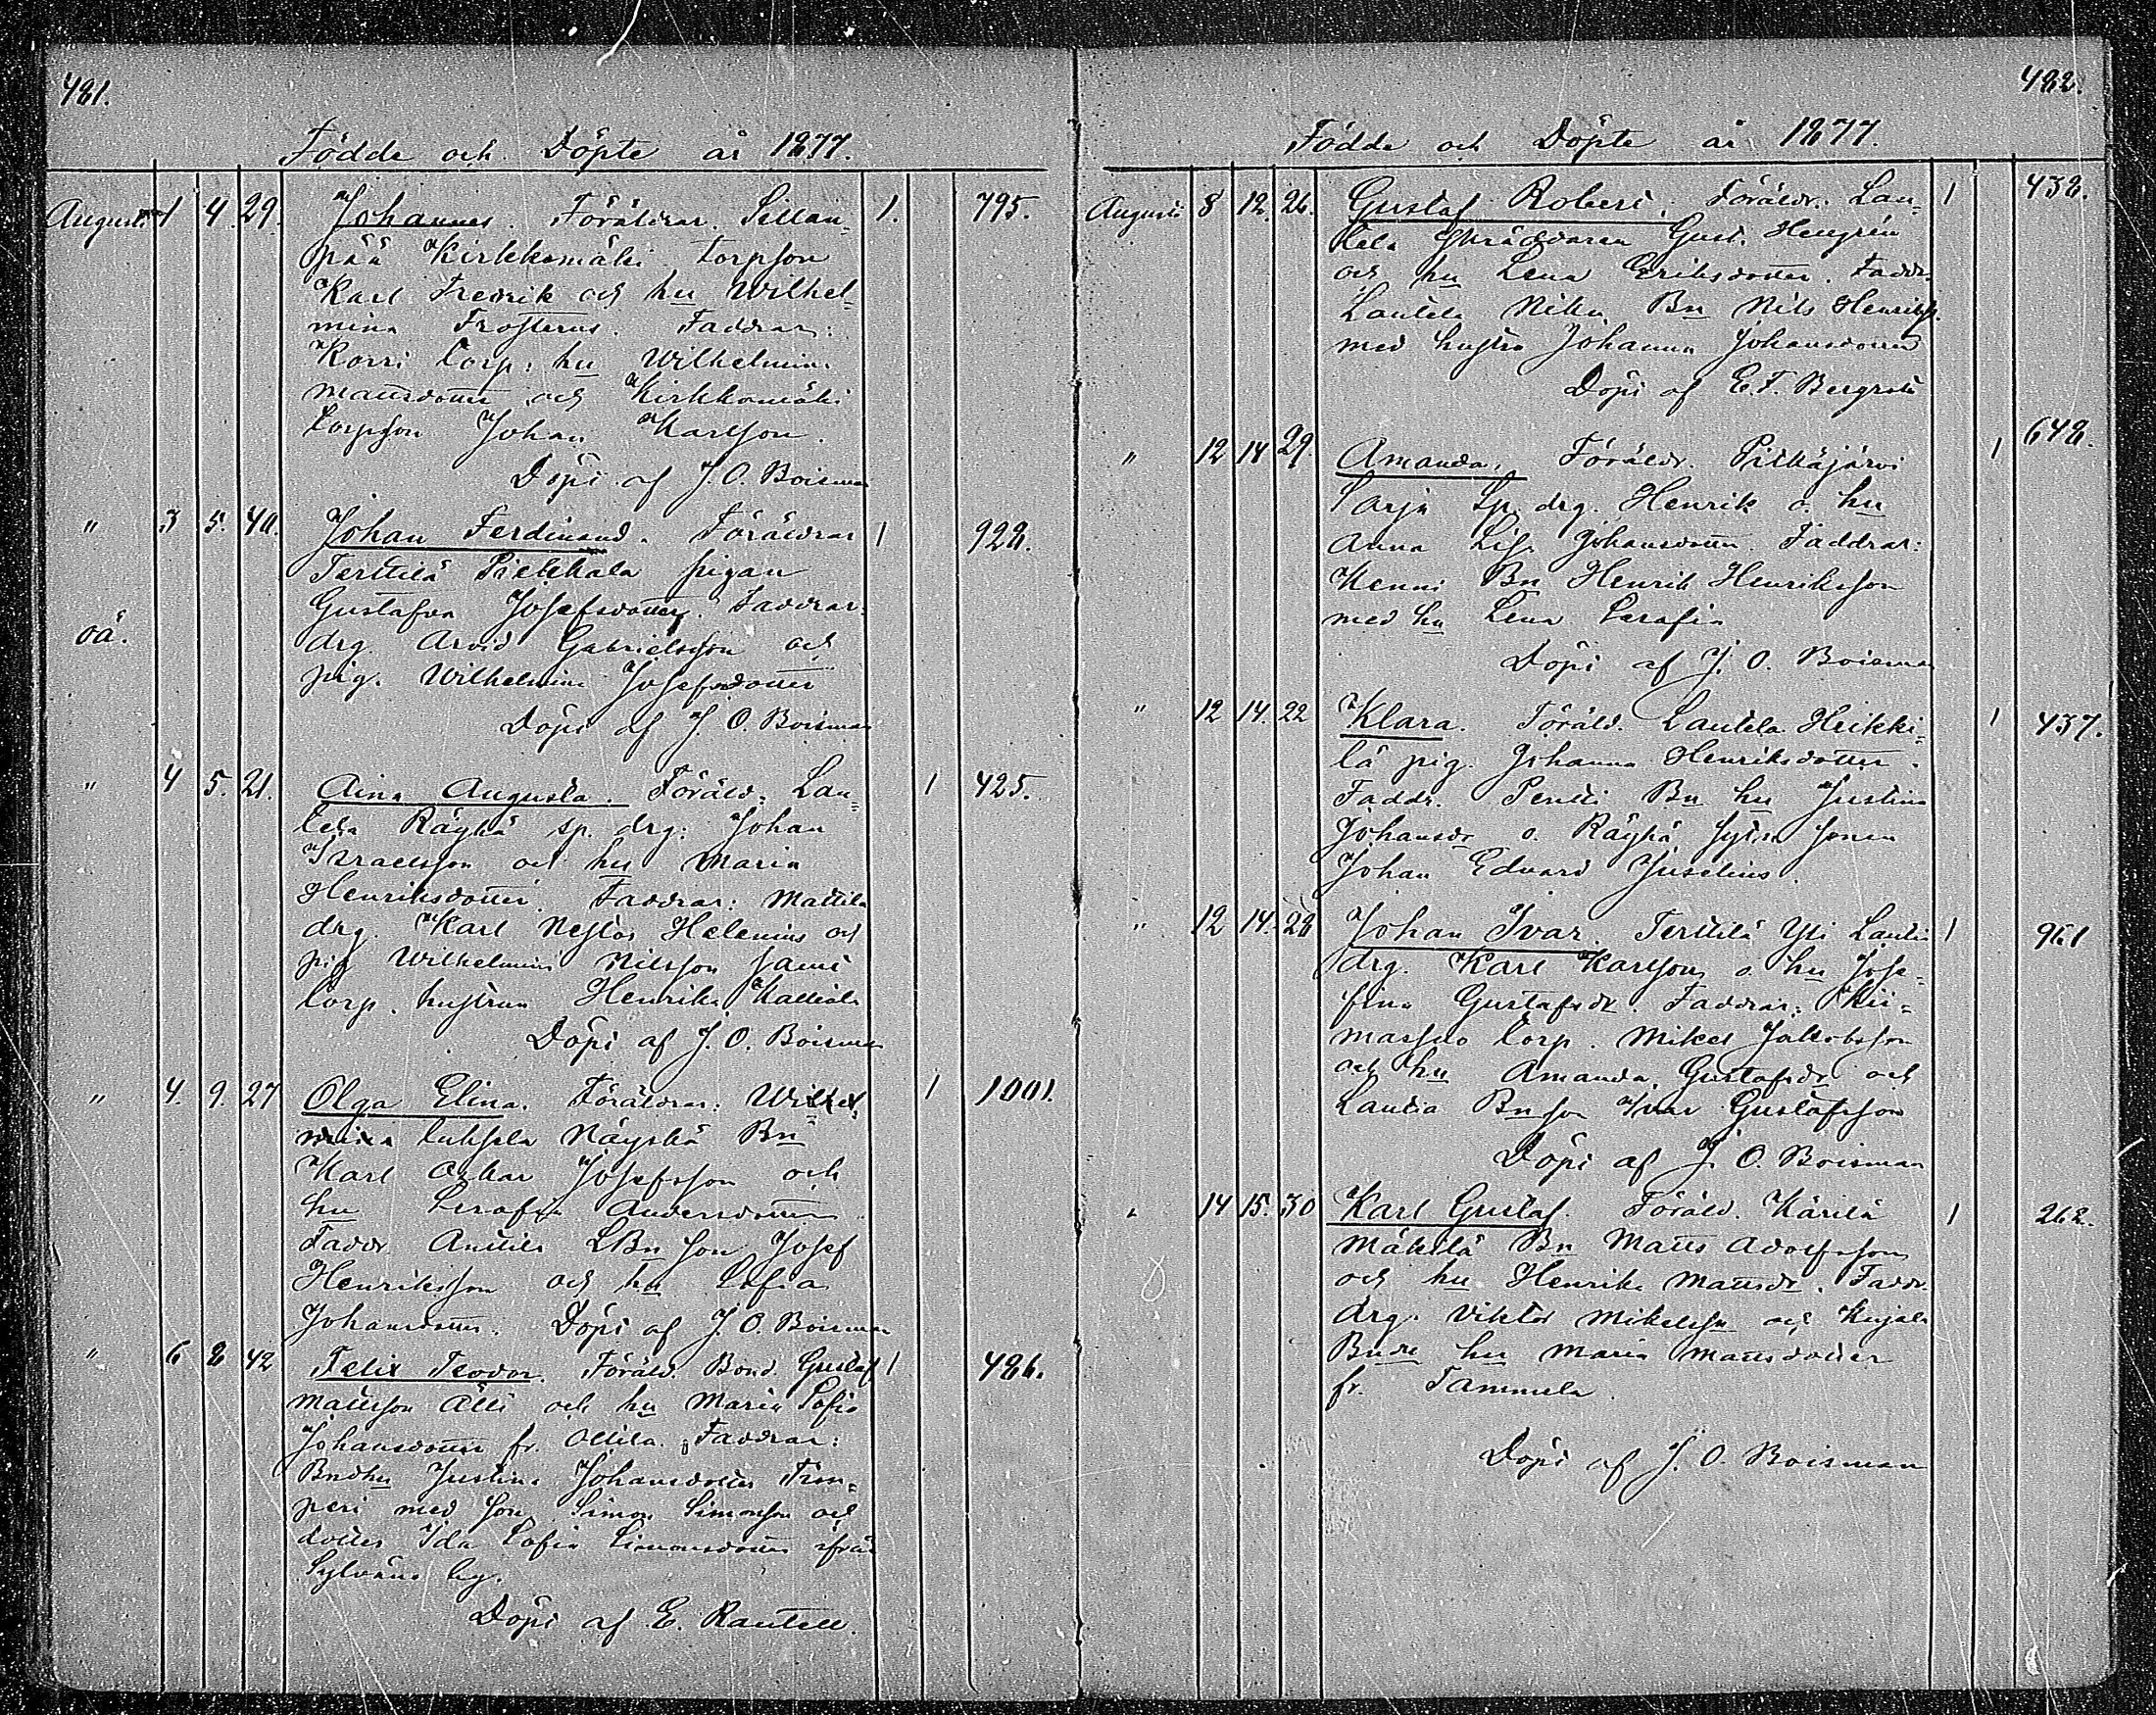 481.
Födde och Döpte år 1877.
Augusti 1 4 29. Johannes. Föräldrar Sillan= 1. 795.
pää Kirkkomäki torpson
Karl Fredrik och hu Wilhel=
mina Frosterus. Faddrar:
Korri torp. hu Wilhelmin.
Mattsdotter och Kirkkomäki
torpson Johan Karlsson.
Döpt af J. O. Boisman
" 3 5. 40. Johan Ferdinand. Föräldrar 1 928.
Terttilä Pietkala pigan
Gustafva Josefsdotter. Faddrar.
oä. drg. Arvid Gabrielsson och
pig. Wilhelmina Josefsdotter
Döpt af J. O. Boisman
" 4 5. 21. Aina Augusta. Föräld. Lau= 1 425.
tela Räyhä sp. drg: Johan
Israelsson och hu Maria
Henriksdotter. Faddrar: Mattila
drg. Karl Nestor Helenius och
pig Wilhelmina Nilsson samt
torp. hustrun Henrika Kalliala
Döpt af J. O. Boisman
" 4. 9. 27 Olga Elina. Föräldrar: 1 1001.
Näyskä Bn
Karl Oskar Josefsson och
hu Serafia Andersdotter
Faddr. Anttila LBn son Josef
Henriksson och hu Sofia
Johansdotter. Döpt af J. O. Boisman
" 6 8 42 Felix Teodor. Föräld. Bond. Gustaf 1 486.
Mattsson Älli och hu Maria Sofia
Johansdotter fr. Ollila. Faddrar:
Bndhu Justina Johansdotter Trom=
peri med son Simon Simonsson och
dotter Ida Sofia Simonsdotter ifrån
Sylväns by.
Döpt af E. Rautell.
482.
Födde och Döpte år 1877.
Augusti 8 12. 26. Gustaf Robert. Föräldr. Lau= 1 438.
tela Skräddaren Gust. Hengrén
och hu Lena Eriksdotter. Faddr.
Lautela Niku Bn Nils Henriks.
med hustru Johanna Johansdotter
Döpt af E. F. Bergroth
" 12 14 29. Amanda. Föräldr. Pitkäjärvi 1 648.
Sarja Sp. drg. Henrik o. hu
Anna Lisa Johansdotter. Faddrar:
Kenni Bn Henrik Henriksson
med hu Lena Serafia
Döpt af J. O. Boisman
" 12 14. 22 Klara. Föräld. Lautela Heikki= 1 437.
lä pig. Johanna Henriksdotter.
Faddr. Pentti Bn hu Justina
Johansdr o. Räyhä sonen
Johan Edvard Juselius.
" 12 14. 28 Johan Ivar. Terttilä Yli Lautia 1 961
drg. Karl Karlsson o. hu Jose=
fina Gustafsdr. Faddrar: Kii=
massuo torp. Mikel Jakobsson
och hu Amanda Gustafsdr och
Lautia Bn son Ivar Gustafsson
Döpt af J. O. Boisman
" 14 15. 30 Karl Gustaf. Föräld. Kärilä 1 262.
Mäkilä Bn Matts Adolfsson
och hu Henrika Mattsdr. Faddr.
drg. Viktor Mikelsson och Kujala
Bnde hu Maria Mattsdotter
fr. Tammela.
Döpt af J. O. Boisman